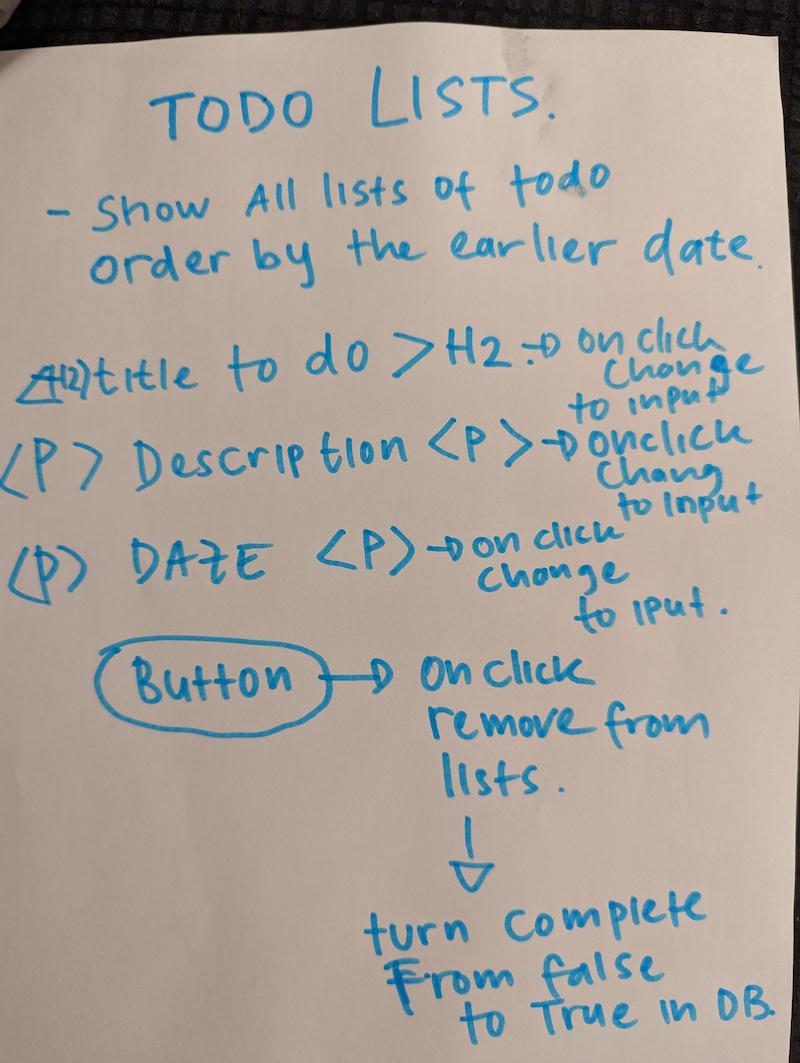 TODO LISTS.
- Show All lists of todo
order by the earlier date.
<H2) title to do > H2. → on click
change
to input
<P> Description <P> → onclick
chang
to Input
<p> DATE <P> → on click
change
to iput.
Button → on click
remove from
lists.
turn complete
From false
to True in DB.